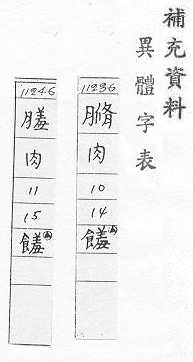 補充資料
異體字表
11236
肉
10
14
饈
11246
肉
11
15
饈